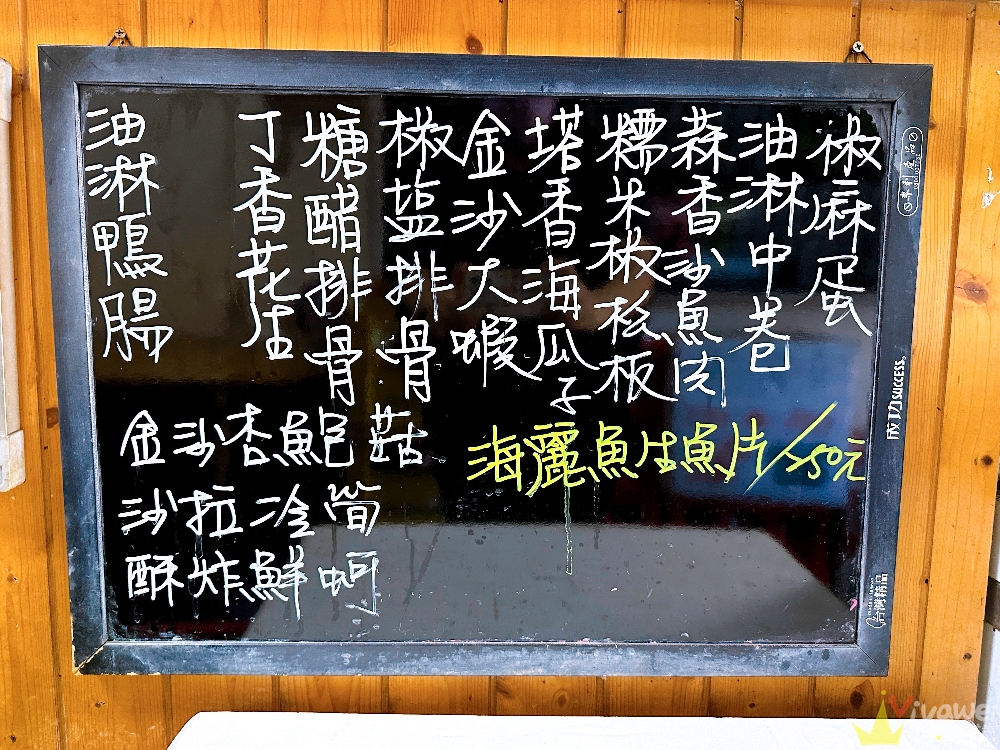 椒麻蛋
油淋中卷
蒜香沙魚肉
糯米椒松板
塔香海瓜子
金沙大蝦
椒塩排骨
糖醋排骨
丁香花生
油淋鴨腸
金沙杏鮑菇
沙拉冷筍
酥炸鮮蚵
海麗魚生魚片/250元
專利產品
成功SUCCESS®
台灣精品
Vivawe